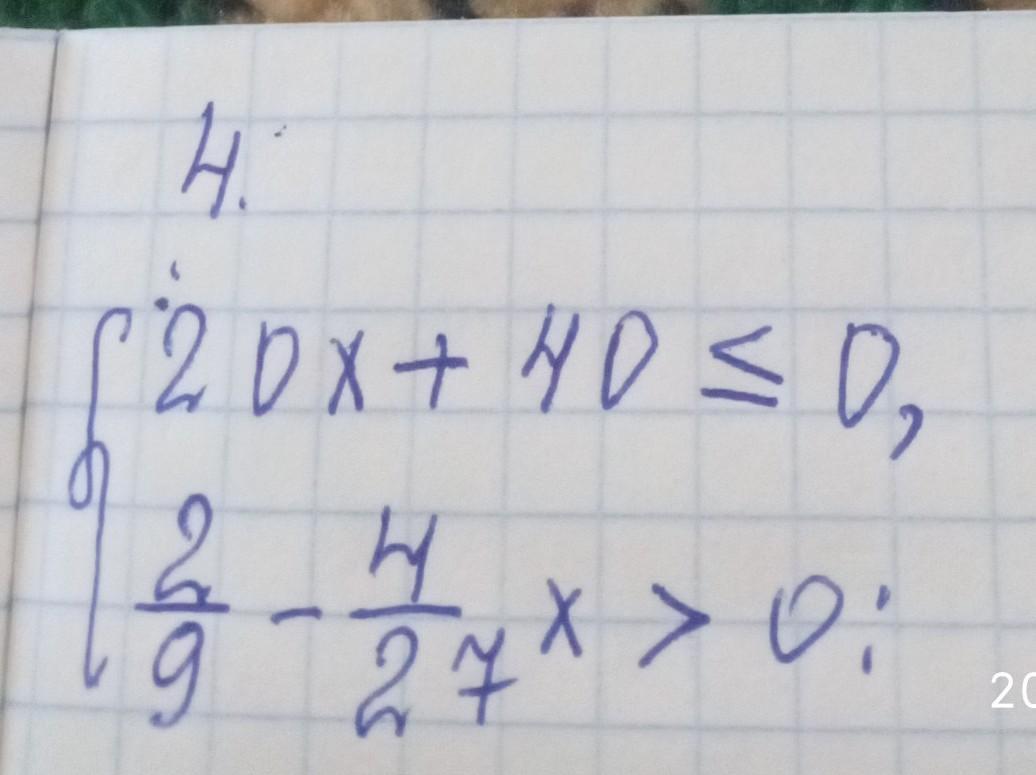 4.
{ 20x + 40 ≤ 0,
2/9 - 4/27 x > 0:
20